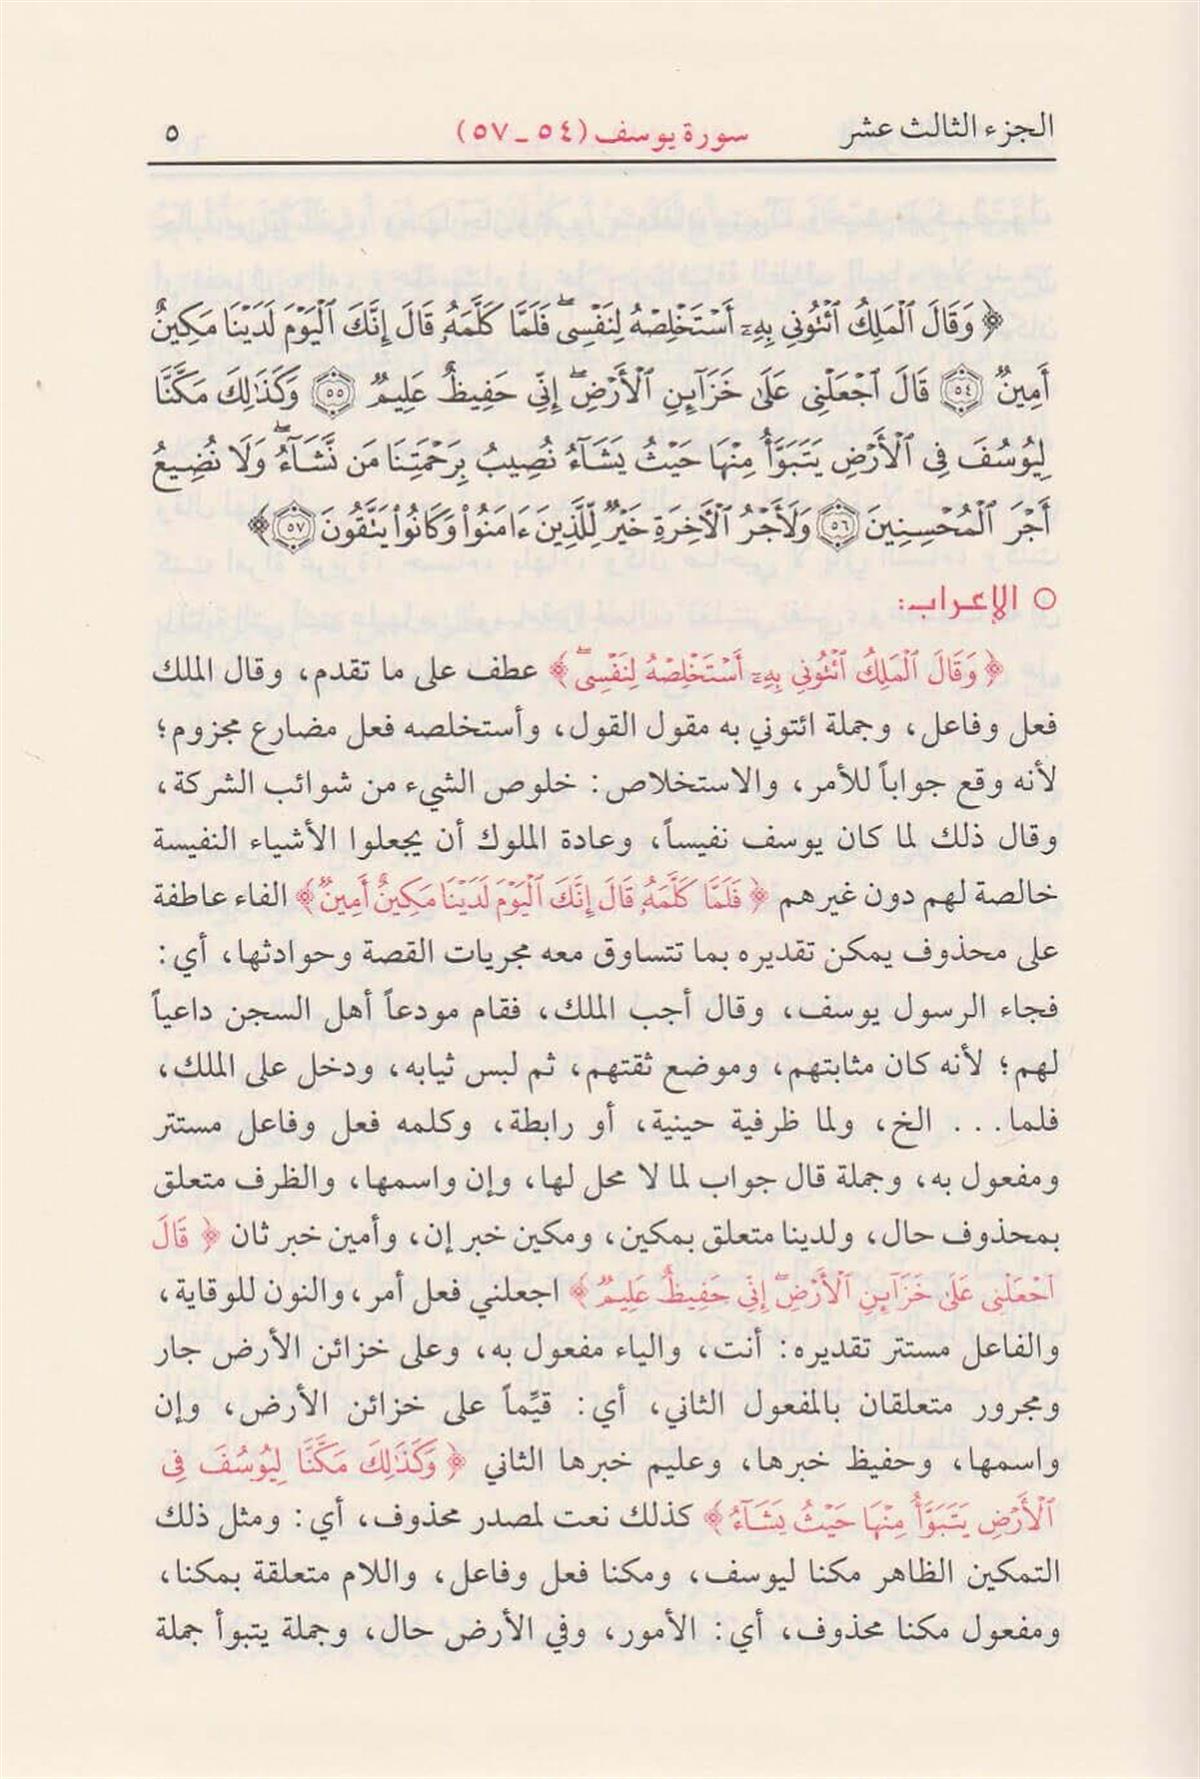 الجزء الثالث عشر سورة يوسف (٥٤ - ٥٧) ٥
﴿ وَقَالَ ٱلْمَلِكُ ٱئْتُونِى بِهِۦٓ أَسْتَخْلِصْهُ لِنَفْسِى ۖ فَلَمَّا كَلَّمَهُۥ قَالَ إِنَّكَ ٱلْيَوْمَ لَدَيْنَا مَكِينٌ
أَمِينٌ ٥٤ قَالَ ٱجْعَلْنِى عَلَىٰ خَزَآئِنِ ٱلْأَرْضِ ۖ إِنِّى حَفِيظٌ عَلِيمٌ ٥٥ وَكَذَٰلِكَ مَكَّنَّا
لِيُوسُفَ فِى ٱلْأَرْضِ يَتَبَوَّأُ مِنْهَا حَيْثُ يَشَآءُ نُصِيبُ بِرَحْمَتِنَا مَن نَّشَآءُ ۖ وَلَا نُضِيعُ
أَجْرَ ٱلْمُحْسِنِينَ ٥٦ وَلَأَجْرُ ٱلْآخِرَةِ خَيْرٌ لِّلَّذِينَ ءَامَنُوا۟ وَكَانُوا۟ يَتَّقُونَ ٥٧ ﴾
○ الإعراب:
﴿ وَقَالَ ٱلْمَلِكُ ٱئْتُونِى بِهِۦٓ أَسْتَخْلِصْهُ لِنَفْسِى ۖ ﴾ عطف على ما تقدم، وقال الملك
فعل وفاعل، وجملة ائتوني به مقول القول، وأستخلصه فعل مضارع مجزوم؛
لأنه وقع جواباً للأمر، والاستخلاص: خلوص الشيء من شوائب الشركة،
وقال ذلك لما كان يوسف نفيساً، وعادة الملوك أن يجعلوا الأشياء النفيسة
خالصة لهم دون غيرهم ﴿ فَلَمَّا كَلَّمَهُۥ قَالَ إِنَّكَ ٱلْيَوْمَ لَدَيْنَا مَكِينٌ أَمِينٌ ﴾ الفاء عاطفة
على محذوف يمكن تقديره بما تتساوق معه مجريات القصة وحوادثها، أي:
فجاء الرسول يوسف، وقال أجب الملك، فقام مودعاً أهل السجن داعياً
لهم؛ لأنه كان مثابتهم، وموضع ثقتهم، ثم لبس ثيابه، ودخل على الملك،
فلما... الخ، ولما ظرفية حينية، أو رابطة، وكلمه فعل وفاعل مستتر
ومفعول به، وجملة قال جواب لما لا محل لها، وإن واسمها، والظرف متعلق
بمحذوف حال، ولدينا متعلق بمكين، ومكين خبر إن، وأمين خبر ثان ﴿ قَالَ
ٱجْعَلْنِى عَلَىٰ خَزَآئِنِ ٱلْأَرْضِ ۖ إِنِّى حَفِيظٌ عَلِيمٌ ﴾ اجعلني فعل أمر، والنون للوقاية،
والفاعل مستتر تقديره: أنت، والياء مفعول به، وعلى خزائن الأرض جار
ومجرور متعلقان بالمفعول الثاني، أي: قيِّماً على خزائن الأرض، وإن
واسمها، وحفيظ خبرها، وعليم خبرها الثاني ﴿ وَكَذَٰلِكَ مَكَّنَّا لِيُوسُفَ فِى
ٱلْأَرْضِ يَتَبَوَّأُ مِنْهَا حَيْثُ يَشَآءُ ﴾ كذلك نعت لمصدر محذوف، أي: ومثل ذلك
التمكين الظاهر مكنا ليوسف، ومكنا فعل وفاعل، واللام متعلقة بمكنا،
ومفعول مكنا محذوف، أي: الأمور، وفي الأرض حال، وجملة يتبوأ جملة